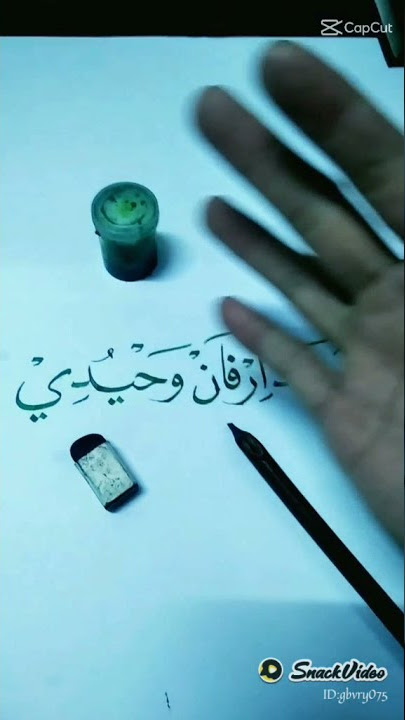 CapCut
اِرْفَانْ وَحْيُدِيْ
SnackVideo
ID:gbvry075